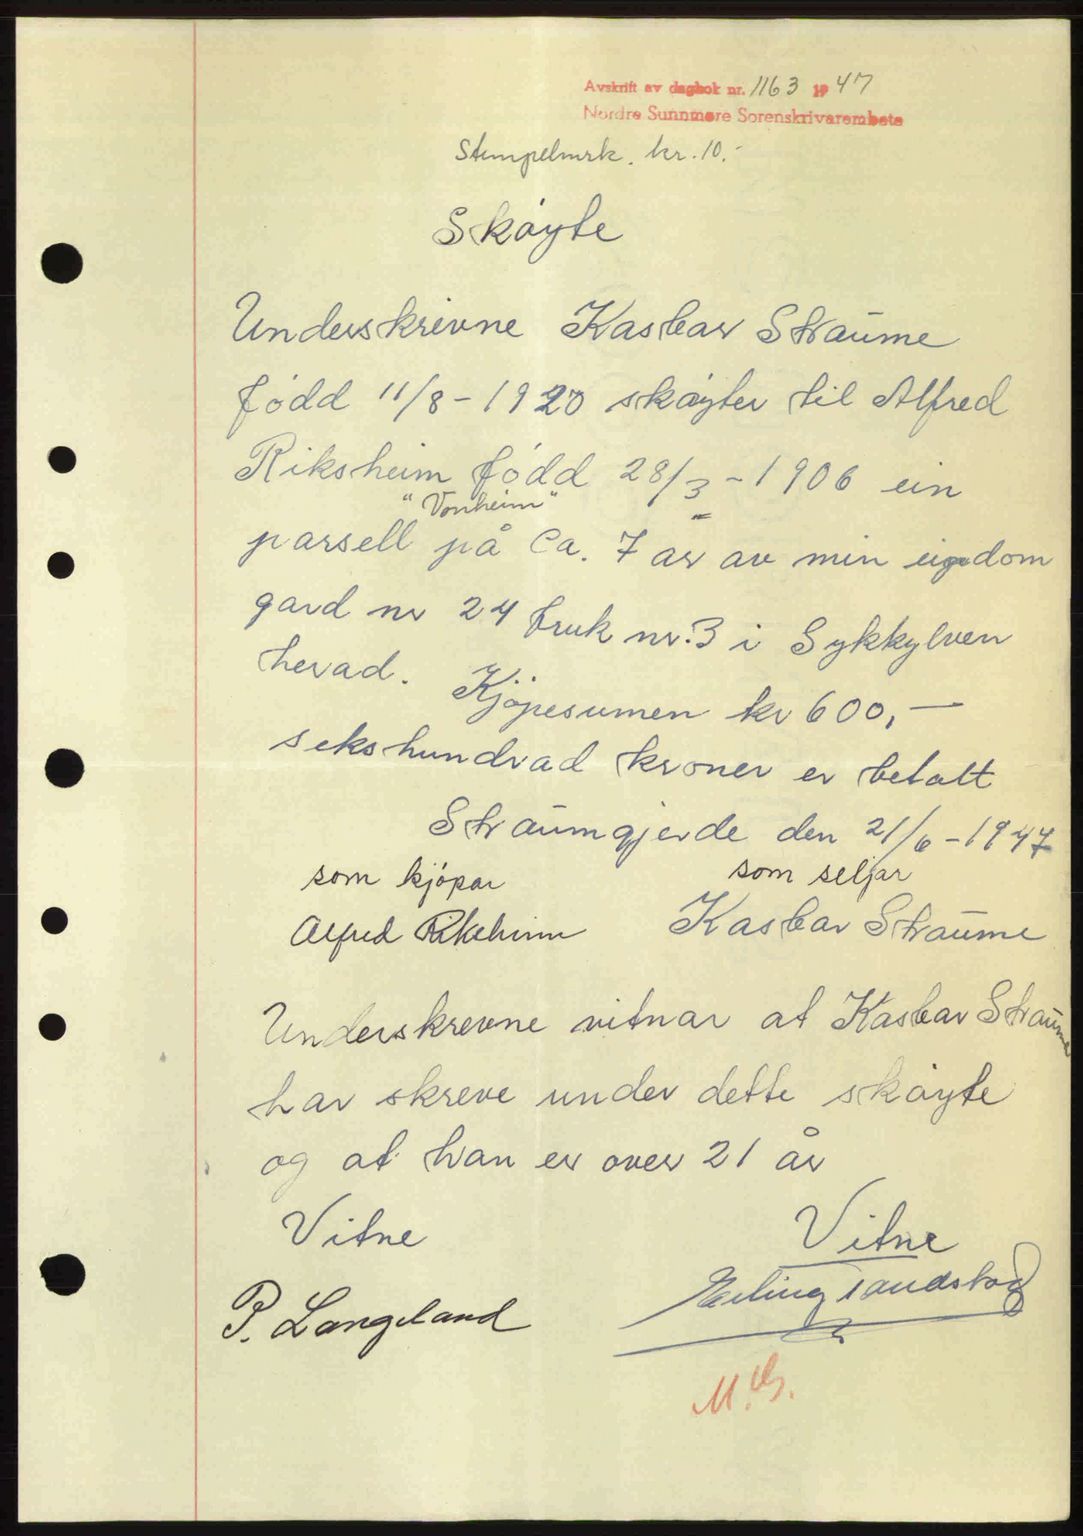 Avskrift av dagbok nr. 1163 1947
Nordre Sunnmøre Sorenskrivarembete
Stempelmrk. kr. 10.-
Skøyte
Underskrivne Kasbar Straume
född 11/8-1920 skøyter til Alfred
Riksheim född 28/3-1906 ein
"Vonheim"
parsell på Ca. 7 ar av min eigedom
gard nr 24 bruk nr. 3 i Sykkylven
herad. Kjøpesumen kr 600,-
sekshundrad kroner er betalt
Straumgjerde den 21/6-1947
som kjøpar som seljar
Alfred Riksheim Kasbar Straume
Underskrevne vitnar at Kasbar Straume
har skreve under dette skøyte
og at han er over 21 år
Vitne Vitne
P. Langeland Erling
M.